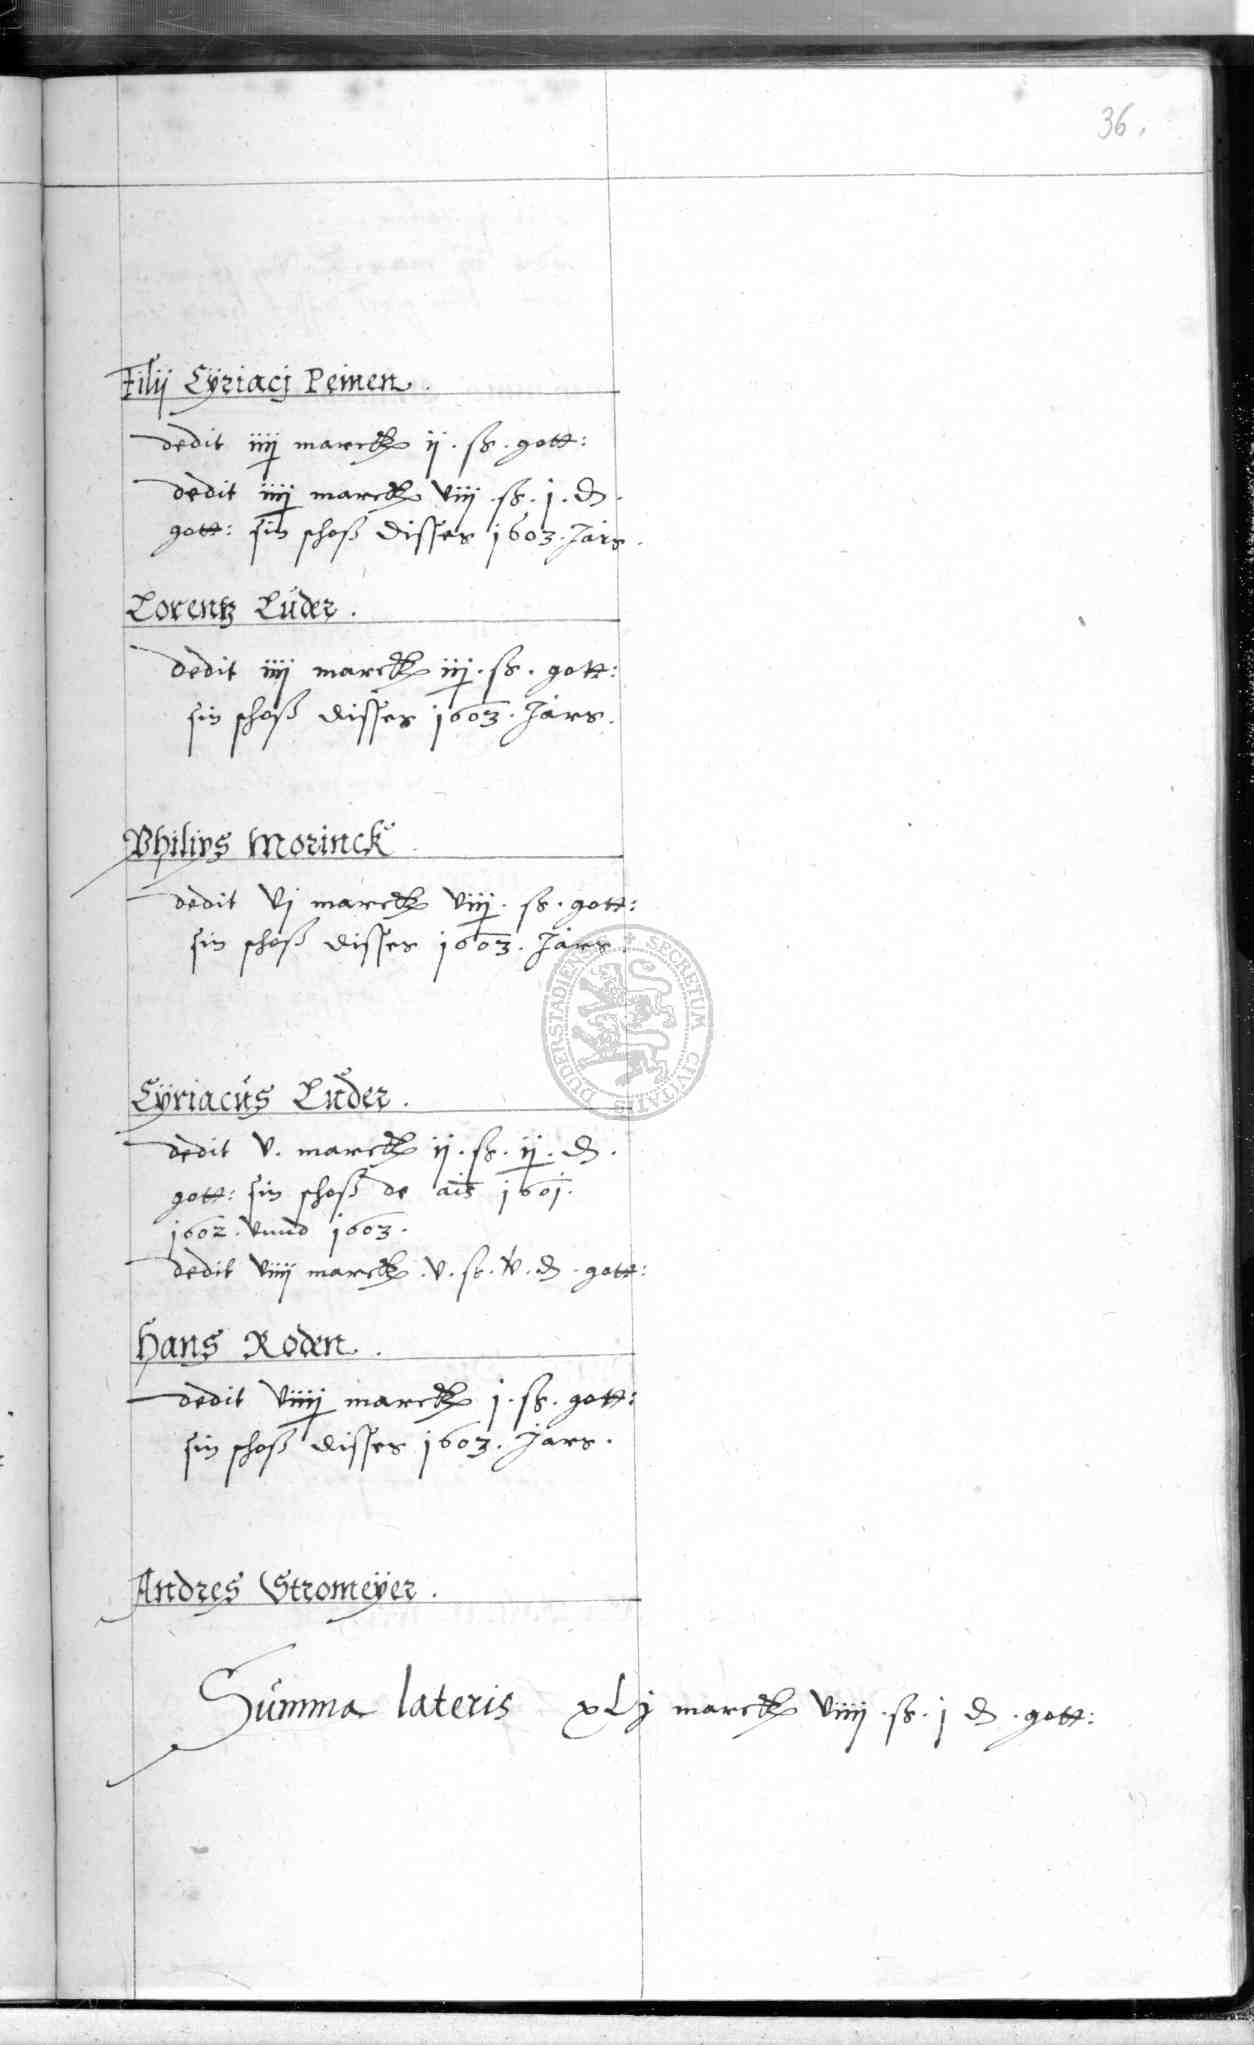 36.
Filij Cÿriacj Peinen.
dedit iiij marck ij. ß. gott:
dedit iiij marck viij. ß. j. d.
gott: sin schoß disses 1603. Jars.
Lorentz Lüder.
dedit iiij marck iij. ß. gott:
sin schoß disses 1603. Jars.
Philips Morinck
dedit vj marck viij. ß. gott:
sin schoß disses 1603. Jars.
SECRETUM CIVITATIS DUDERSTADIENSIS
Cÿriacus Lüder.
dedit v. marck ij. ß. ij. d.
gott: sin schoß de ais 1601.
1602. vnnd 1603.
dedit viiij marck. v. ß. v. d. gott:
Hans Roden.
dedit viiij marck j. ß. gott:
sin schoß disses 1603. Jars.
Andres Stromeÿer.
Summa lateris xLj marck viiij. ß. j d. gott: